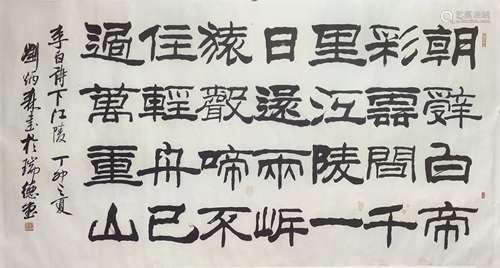 朝辭白帝
彩雲間千
里江陵一
日還兩岸
猿聲啼不
住輕舟已
過萬重山
李白詩下江陵 丁卯之夏
劉炳森書於瑞德堂